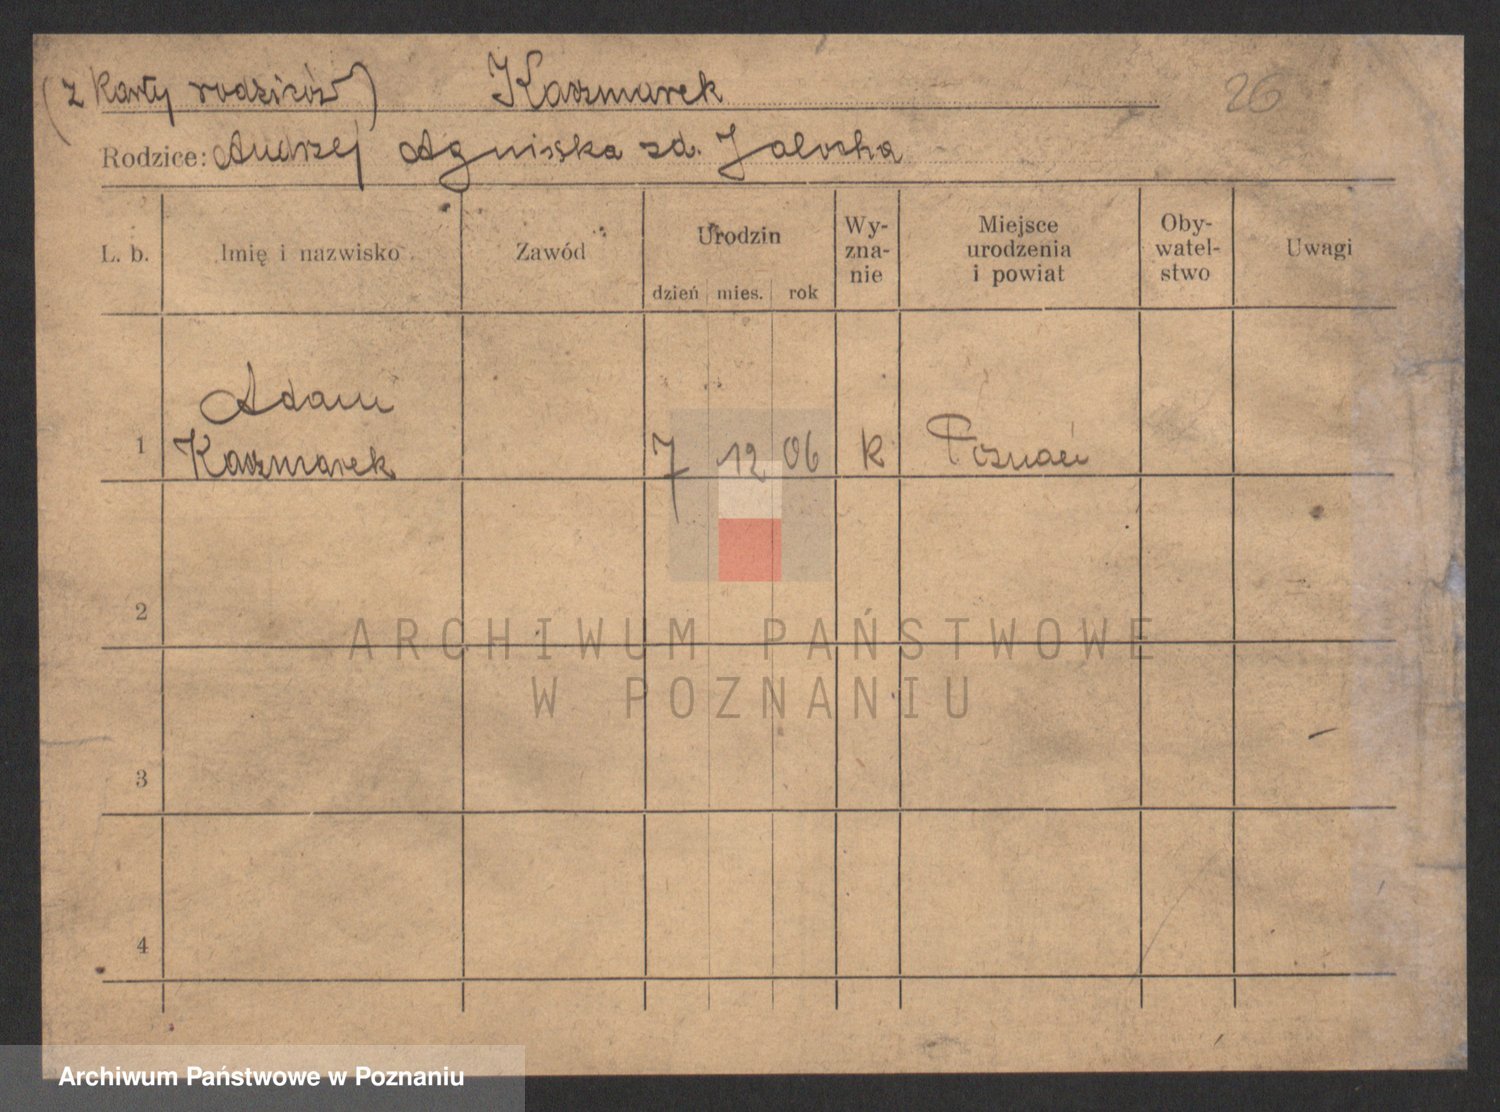 (z karty rodziców) Kaczmarek 26
Rodzice: Andrzej Agnieszka zd. Jałocha
L. b. Imię i nazwisko Zawód Urodzin dzień mies. rok Wy-zna-nie Miejsce urodzenia i powiat Oby-watel-stwo Uwagi
Adam
1 Kaczmarek 7 12 06 k Poznań
2
ARCHIWUM PAŃSTWOWE
W POZNANIU
3
4
Archiwum Państwowe w Poznaniu